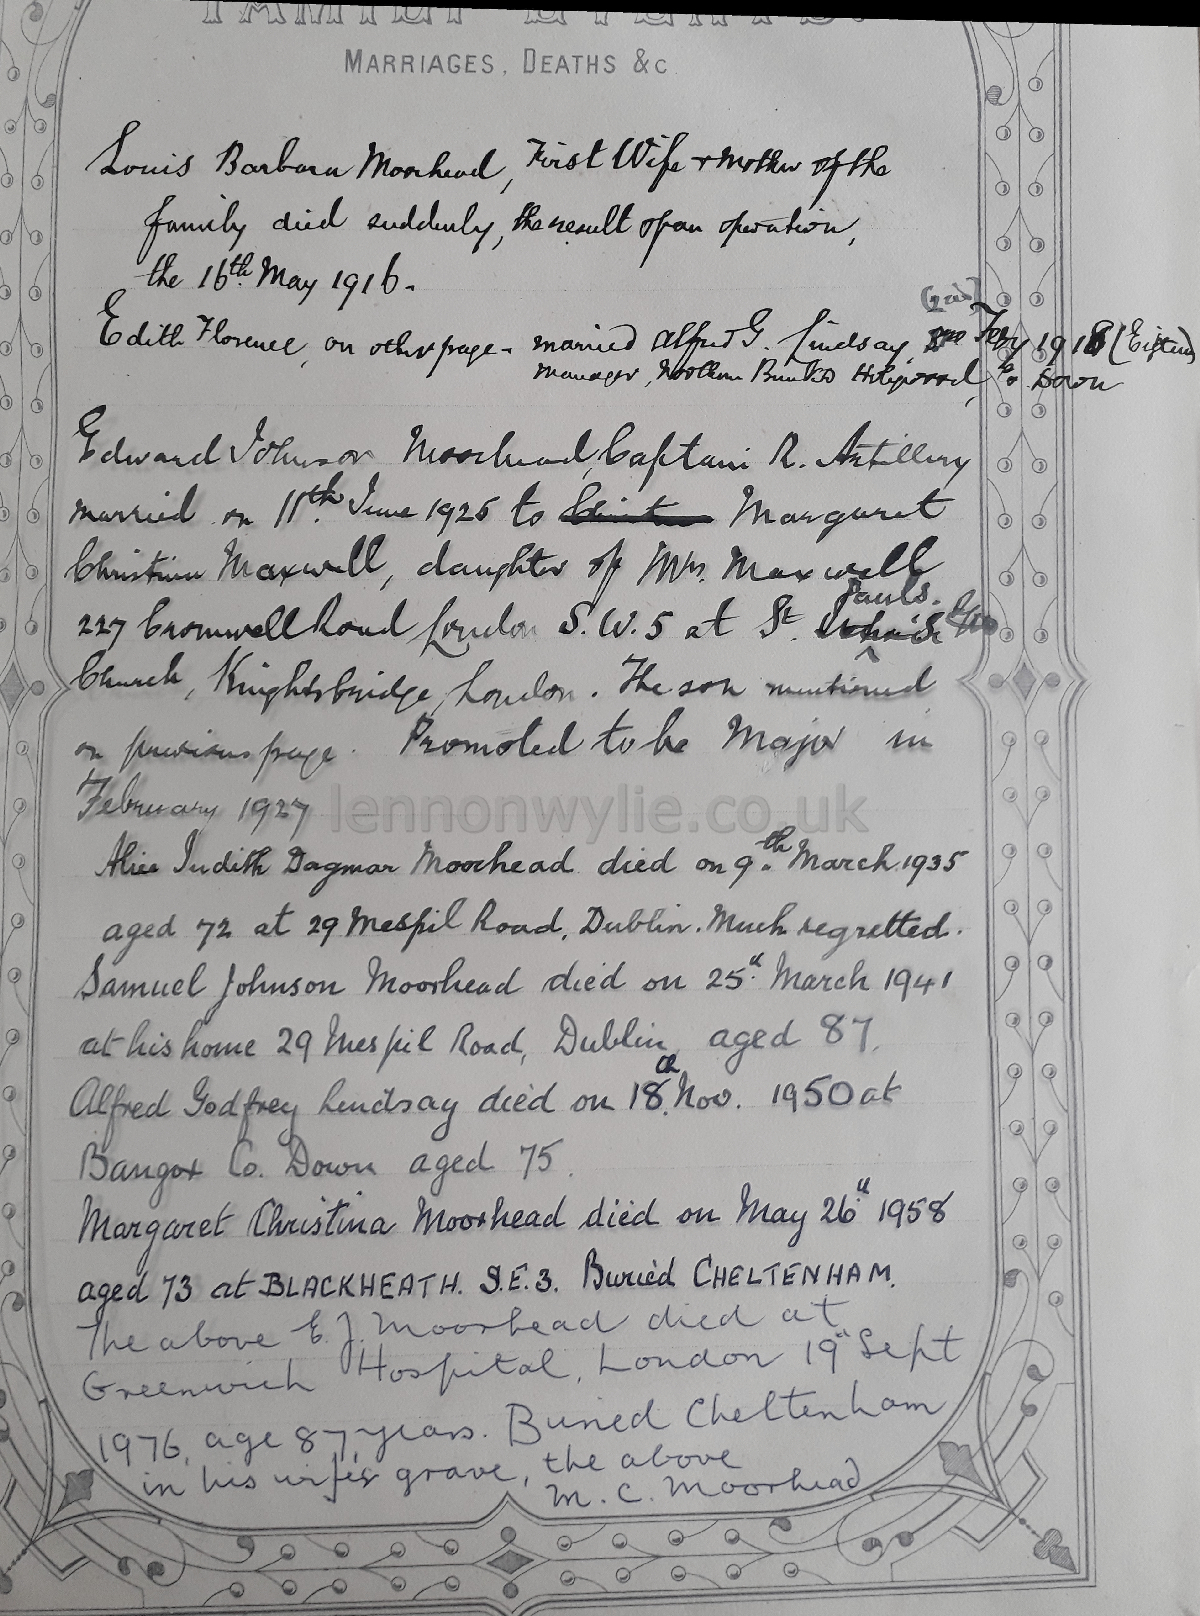 FAMILY EVENTS.
MARRIAGES, DEATHS &c
Louis Barbara Moorhead, First Wife + Mother of the
family died suddenly, the result of an operation,
the 16th May 1916.
(2nd)
Edith Florence, on other page - married Alfred G. Lindsay, Feby 1918
Manager, Northern Bank Holywood, Co Down
Edward Johnson Moorhead, Captain R. Artillery
married on 11th June 1925 to Margaret
Christina Maxwell, daughter of Mrs. Maxwell
Pauls.
227 Cromwell Road London S.W.5 at St.
Church, Knightsbridge, London. The son mentioned
on previous page. Promoted to be Major in
February 1927
lennonwylie.co.uk
Alice Judith Dagmar Moorhead died on 9th March 1935
aged 72 at 29 Mespil Road, Dublin. Much regretted.
Samuel Johnson Moorhead died on 25th March 1941
at his home 29 Mespil Road, Dublin, aged 87.
Alfred Godfrey Lindsay died on 18th Nov. 1950 at
Bangor Co. Down aged 75.
Margaret Christina Moorhead died on May 26th 1958
aged 73 at BLACKHEATH. S.E.3. Buried CHELTENHAM.
The above E. J. Moorhead died at
Greenwich Hospital, London 19th Sept
1976, age 87 years. Buried Cheltenham
in his wife's grave, the above
M. C. Moorhead